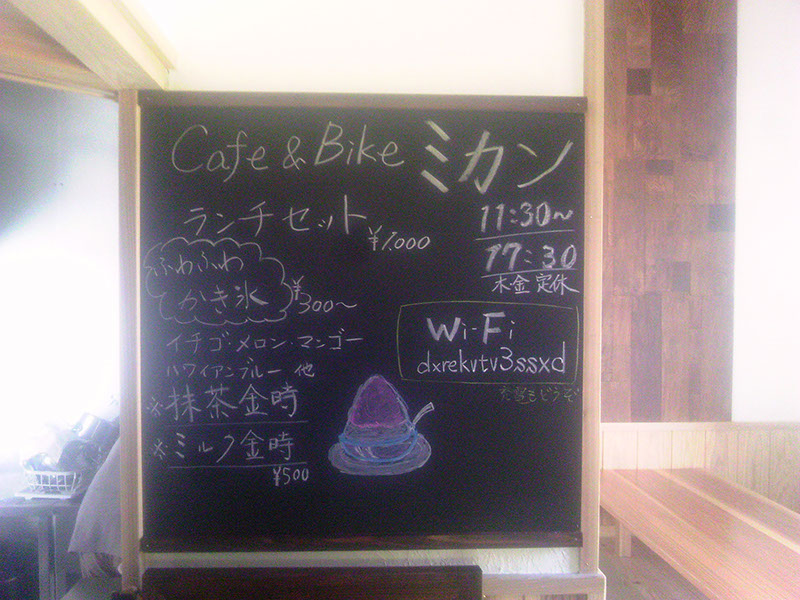 Cafe & Bike ミカン
ランチセット ¥1,000
11:30〜
17:30
木金定休
ふわふわ
かき氷 ¥300〜
イチゴ・メロン・マンゴー
ハワイアンブルー 他
※抹茶金時
※ミルク金時
¥500
Wi-Fi
dxrekvtv3ssxd
充電もどうぞ